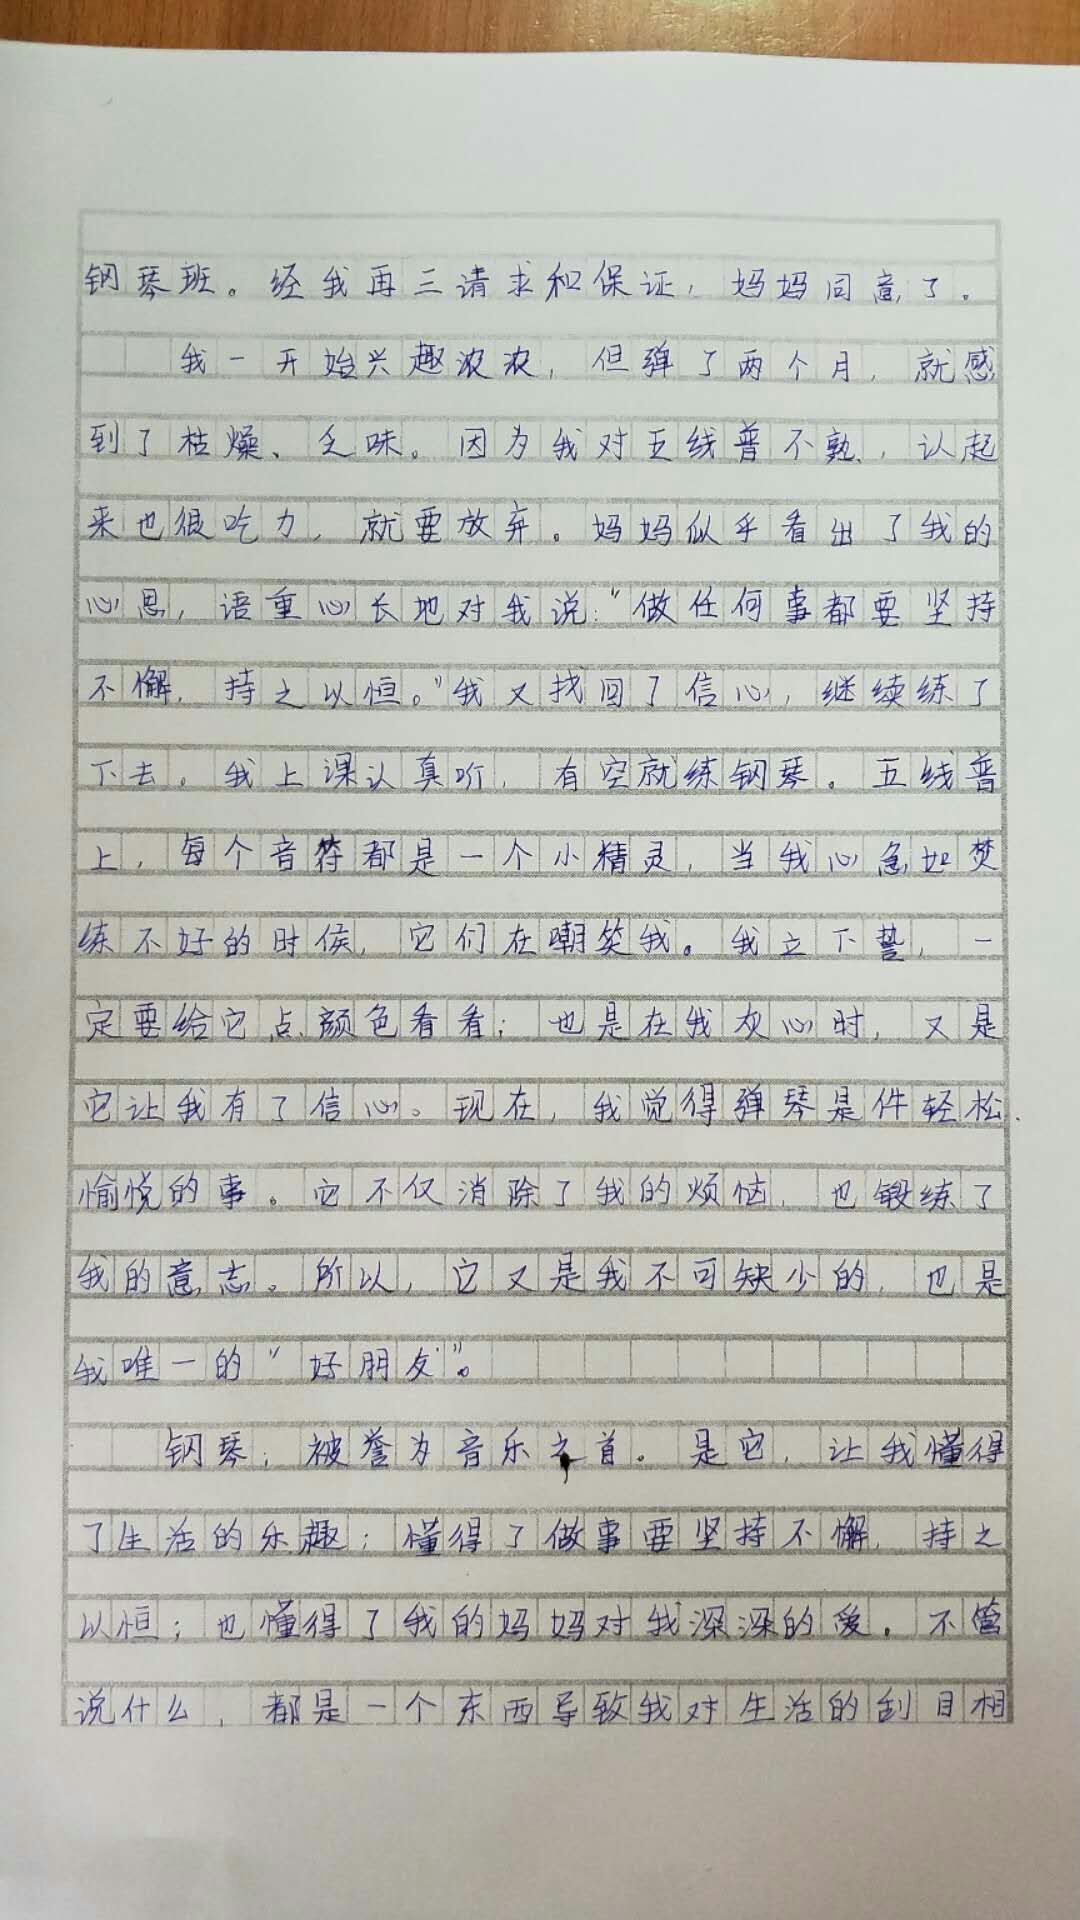 钢琴班。经我再三请求和保证，妈妈同意了。
我一开始兴趣浓浓，但弹了两个月，就感
到了枯燥、乏味。因为我对五线普不熟，认起
来也很吃力，就要放弃。妈妈似乎看出了我的
心思，语重心长地对我说：“做任何事都要坚持
不懈，持之以恒。”我又找回了信心，继续练了
下去。我上课认真听，有空就练钢琴。五线普
上，每个音符都是一个小精灵，当我心急如焚
练不好的时侯，它们在嘲笑我。我立下誓，一
定要给它点颜色看看；也是在我灰心时，又是
它让我有了信心。现在，我觉得弹琴是件轻松
愉悦的事。它不仅消除了我的烦恼，也锻练了
我的意志。所以，它又是我不可缺少的，也是
我唯一的“好朋友”。
钢琴，被誉为音乐之首。是它，让我懂得
了生活的乐趣；懂得了做事要坚持不懈，持之
以恒；也懂得了我的妈妈对我深深的爱。不管
说什么，都是一个东西导致我对生活的刮目相